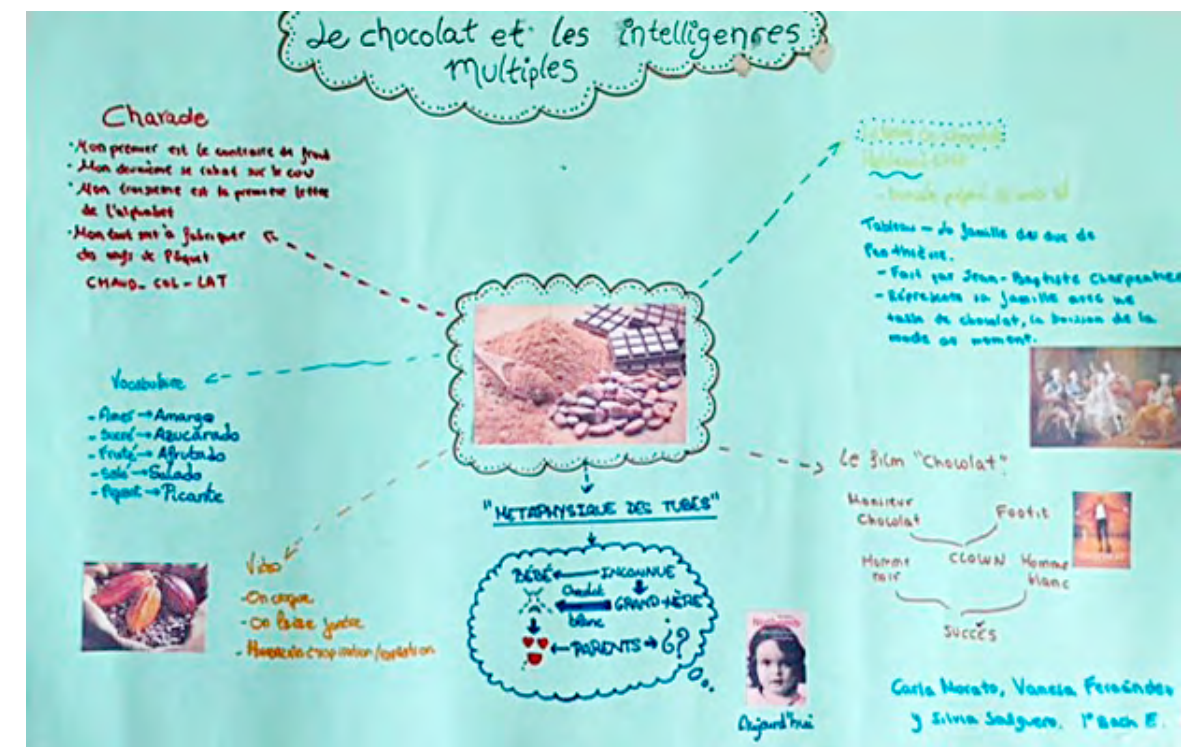 Le chocolat et les intelligences
multiples
Charade
• Mon premier est le contraire de froid
• Mon deuxième se rabat sur le cou
• Mon troisième est la première lettre
de l'alphabet
• Mon tout sert à fabriquer
des œufs de Pâques
CHAUD - COL - LAT
Vocabulaire
- Amer → Amargo
- Sucré → Azucarado
- Fruté → Afrutado
- Salé → Salado
- Piquant → Picante
Vidéo
- On croque
- On laisse fondre
"METAPHYSIQUE DES TUBES"
BÉBÉ
INCONNUE
Chocolat
blanc
GRAND-MÈRE
PARENTS
¿?
Aujourd'hui
Tableau - La famille du duc de
Penthièvre.
- Fait par Jean-Baptiste Charpentier
- Représente sa famille avec une
tasse de chocolat, la boisson de la
mode au moment.
Le film "Chocolat"
Monsieur
Chocolat
Footit
CLOWN
Homme
noir
Homme
blanc
SUCCÈS
Carla Morato, Vanesa Fernández
y Silvia Salguero. 1º Bach E.